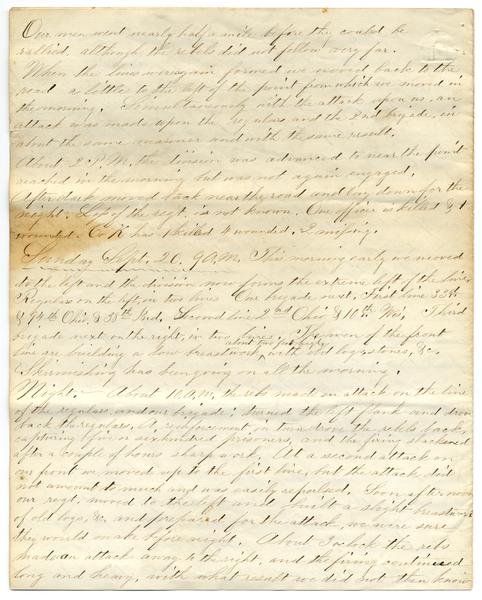 Our men went nearly half a mile before they could be
rallied, although the rebels did not follow very far.
When the lines were again formed we moved back to the
road a little to the left of the point from which we moved in
the morning. Simultaneously with the attack upon us, an
attack was made upon the regulars and the 2nd brigade, in
about the same manner and with the same result.
About 2 P.M. the division was advanced to near the point
reached in the morning but was not again engaged.
After dark moved back near the road and lay down for the
night. Loss of the regt. is not known. One officer is killed & 1
wounded. Co K has 1 killed 4 wounded, 2 missing.
Sunday Sept. 20, 9 A.M. This morning early we moved
to the left and the division now forms the extreme left of the line,
Regulars on the left, in two lines. Our brigade next. First line 33d
& 94th Ohio, & 38th Ind. Second line 2nd Ohio & 10th Wis. Third
brigade next on the right, in two lines. The men of the front
line are building a low breastwork about two feet high with old logs, stones, &c.
Skirmishing has been going on all the morning.
Night. – About 10 A.M. the rebs made an attack on the line
of the regulars and our brigade; turned the left flank and drove
back the regulars. A reinforcement in turn drove the rebels back,
capturing five or six hundred prisoners, and the firing slackened
after a couple of hours sharp work. At a second attack on
our front we moved up to the first line, but the attack did
not amount to much and was easily repulsed. Soon after noon
our regt. moved to the left and built a slight breastwork
of old logs, &c. and prepared for the attack, we were sure
they would make before night. About 3 o'clock the rebs
made an attack away to the right, and the firing continued
long and heavy, with what result we did not then know